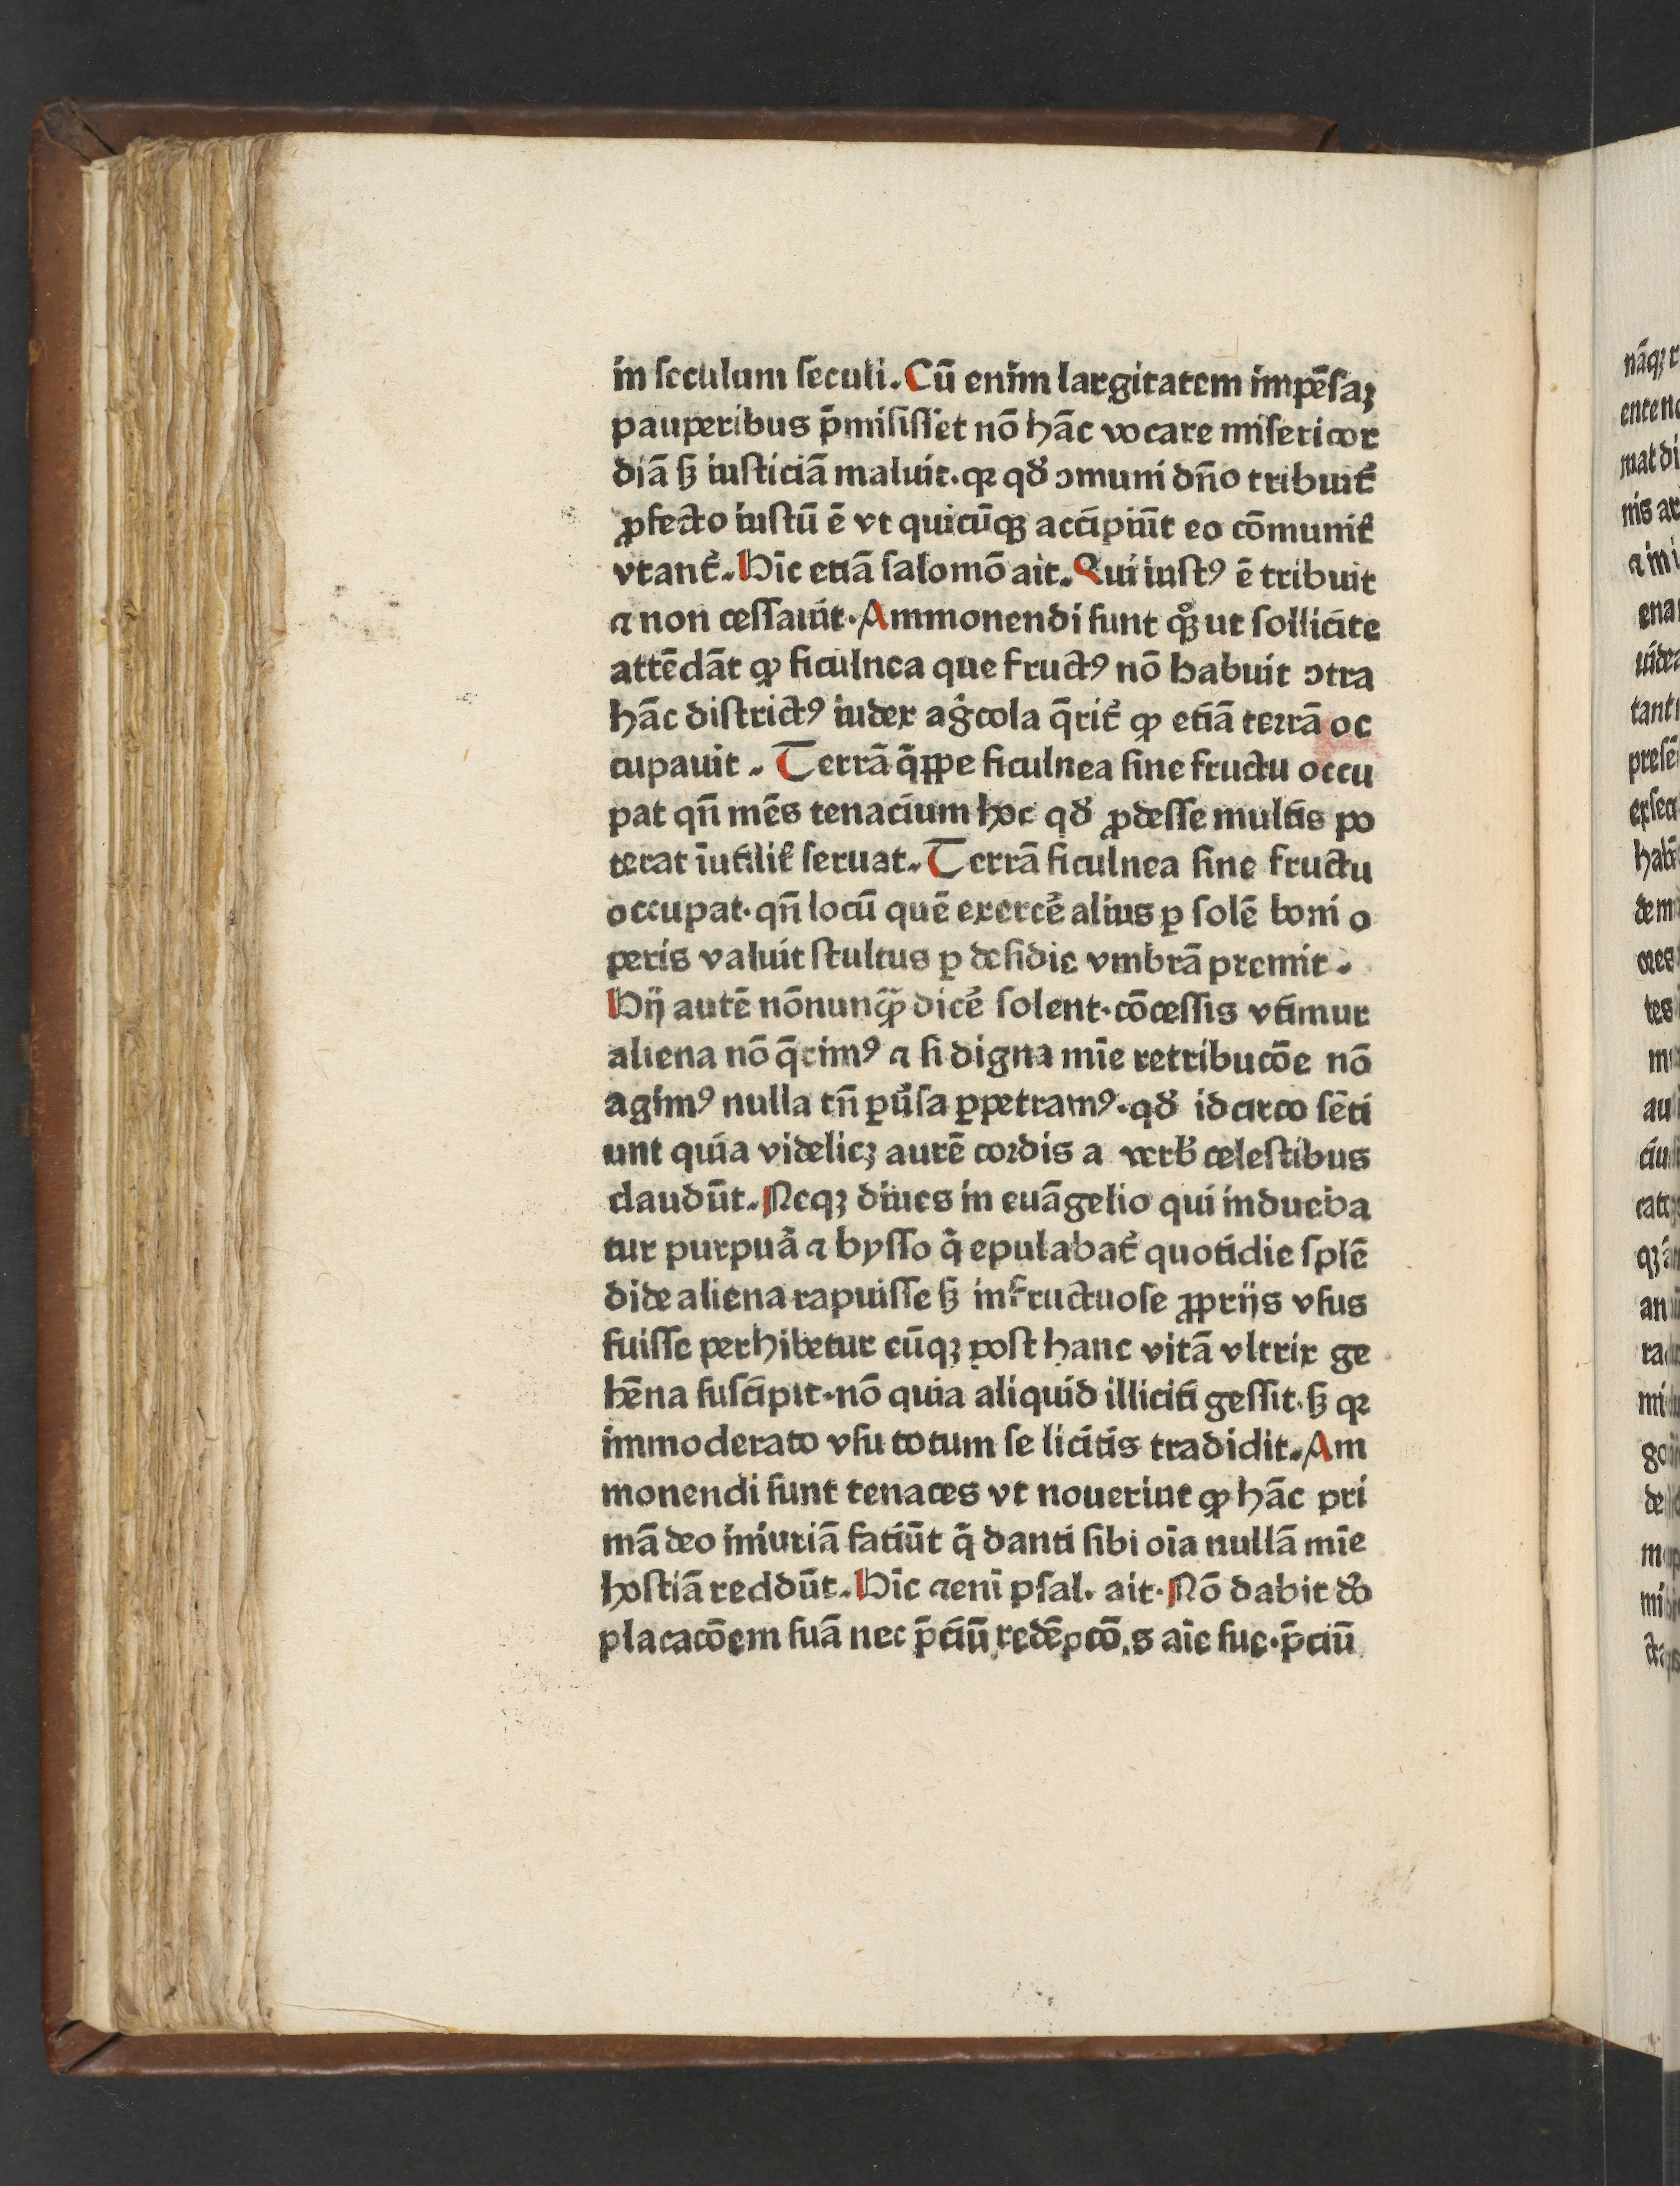 in seculum seculi. Cū enim largitatem impēsaꝫ
pauperibus p̄misisset nō hāc vocare misericor
diā sꝫ iusticiā maluit. qꝛ qđ ɔmuni dn̄o tribuit᷑
ꝓfecto iustū ē vt quicūqꝫ accipiūt eo cōmunit᷑
vtant᷑. Hīc etiā salomō ait. Qui iustꝰ ē tribuit
⁊ non cessauit. Ammonendi sunt qͦꝫ ut sollicite
attēdāt ꝙ ficulnea que fructꝰ nō habuit ɔtra
hāc districtꝰ iudex agͥcola q̄rit᷑ ꝙ etiā terrā oc
cupauit. Terrā qͥ̄ppe ficulnea sine fructu occu
pat qn̄ mēs tenacium hoc qđ ꝓdesse multis po
terat īutilit᷑ seruat. Terrā ficulnea sine fructu
occupat. qn̄ locū quē exercē᷑ alius ꝑ solē boni o
peris valuit stultus ꝑ desidie vmbrā premit.
Hij autē nōnunꝙ̄ dicē᷑ solent. cōcessis vtimur
aliena nō q̄rimꝰ ⁊ si digna mīe retribucōe nō
agimꝰ nulla tn̄ ꝑu᷑sa ꝑpetramꝰ. qđ idcirco sēti
unt quia videlicꝫ aurē cordis a verb᷑ celestibus
claudūt. Neqꝫ diues in euāgelio qui indueba
tur purpuā᷑ ⁊ bysso qͥ epulabat᷑ quotidie splē
dide aliena rapuisse sꝫ infructuose ꝓprijs vsus
fuisse perhibetur eūqꝫ post hanc vitā vltrix ge
hēna suscipit. nō quia aliquid illiciti gessit. sꝫ qꝛ
immoderato vsu totum se licitis tradidit. Am
monendi sunt tenaces vt nouerint ꝙ hāc pri
mā deo iniuriā fatiūt qͥ danti sibi oīa nullā mīe
hostiā reddūt. Hīc ⁊enī psal. ait. Nō dabit do᷑
placacōem suā nec p̄ciū redēpcōis aīe sue. p̄ciū